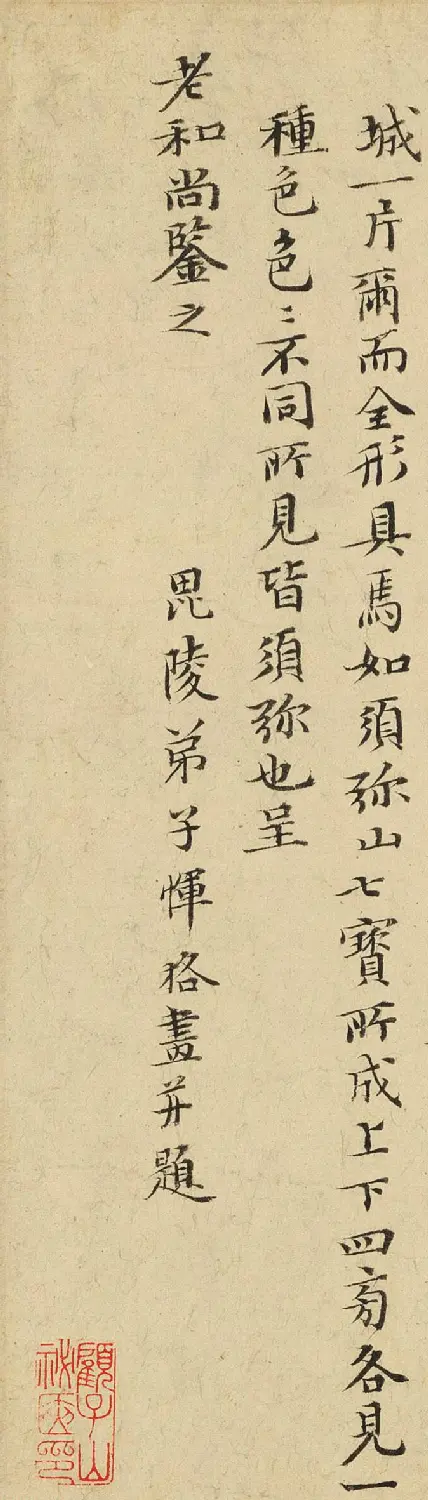 城一片爾而全形具焉如須弥山七寶所成上下四旁各見一
種色色〻不同所見皆須弥也呈
老和尚鑒之
毘陵弟子惲格畫并題
顧子山
祕篋印